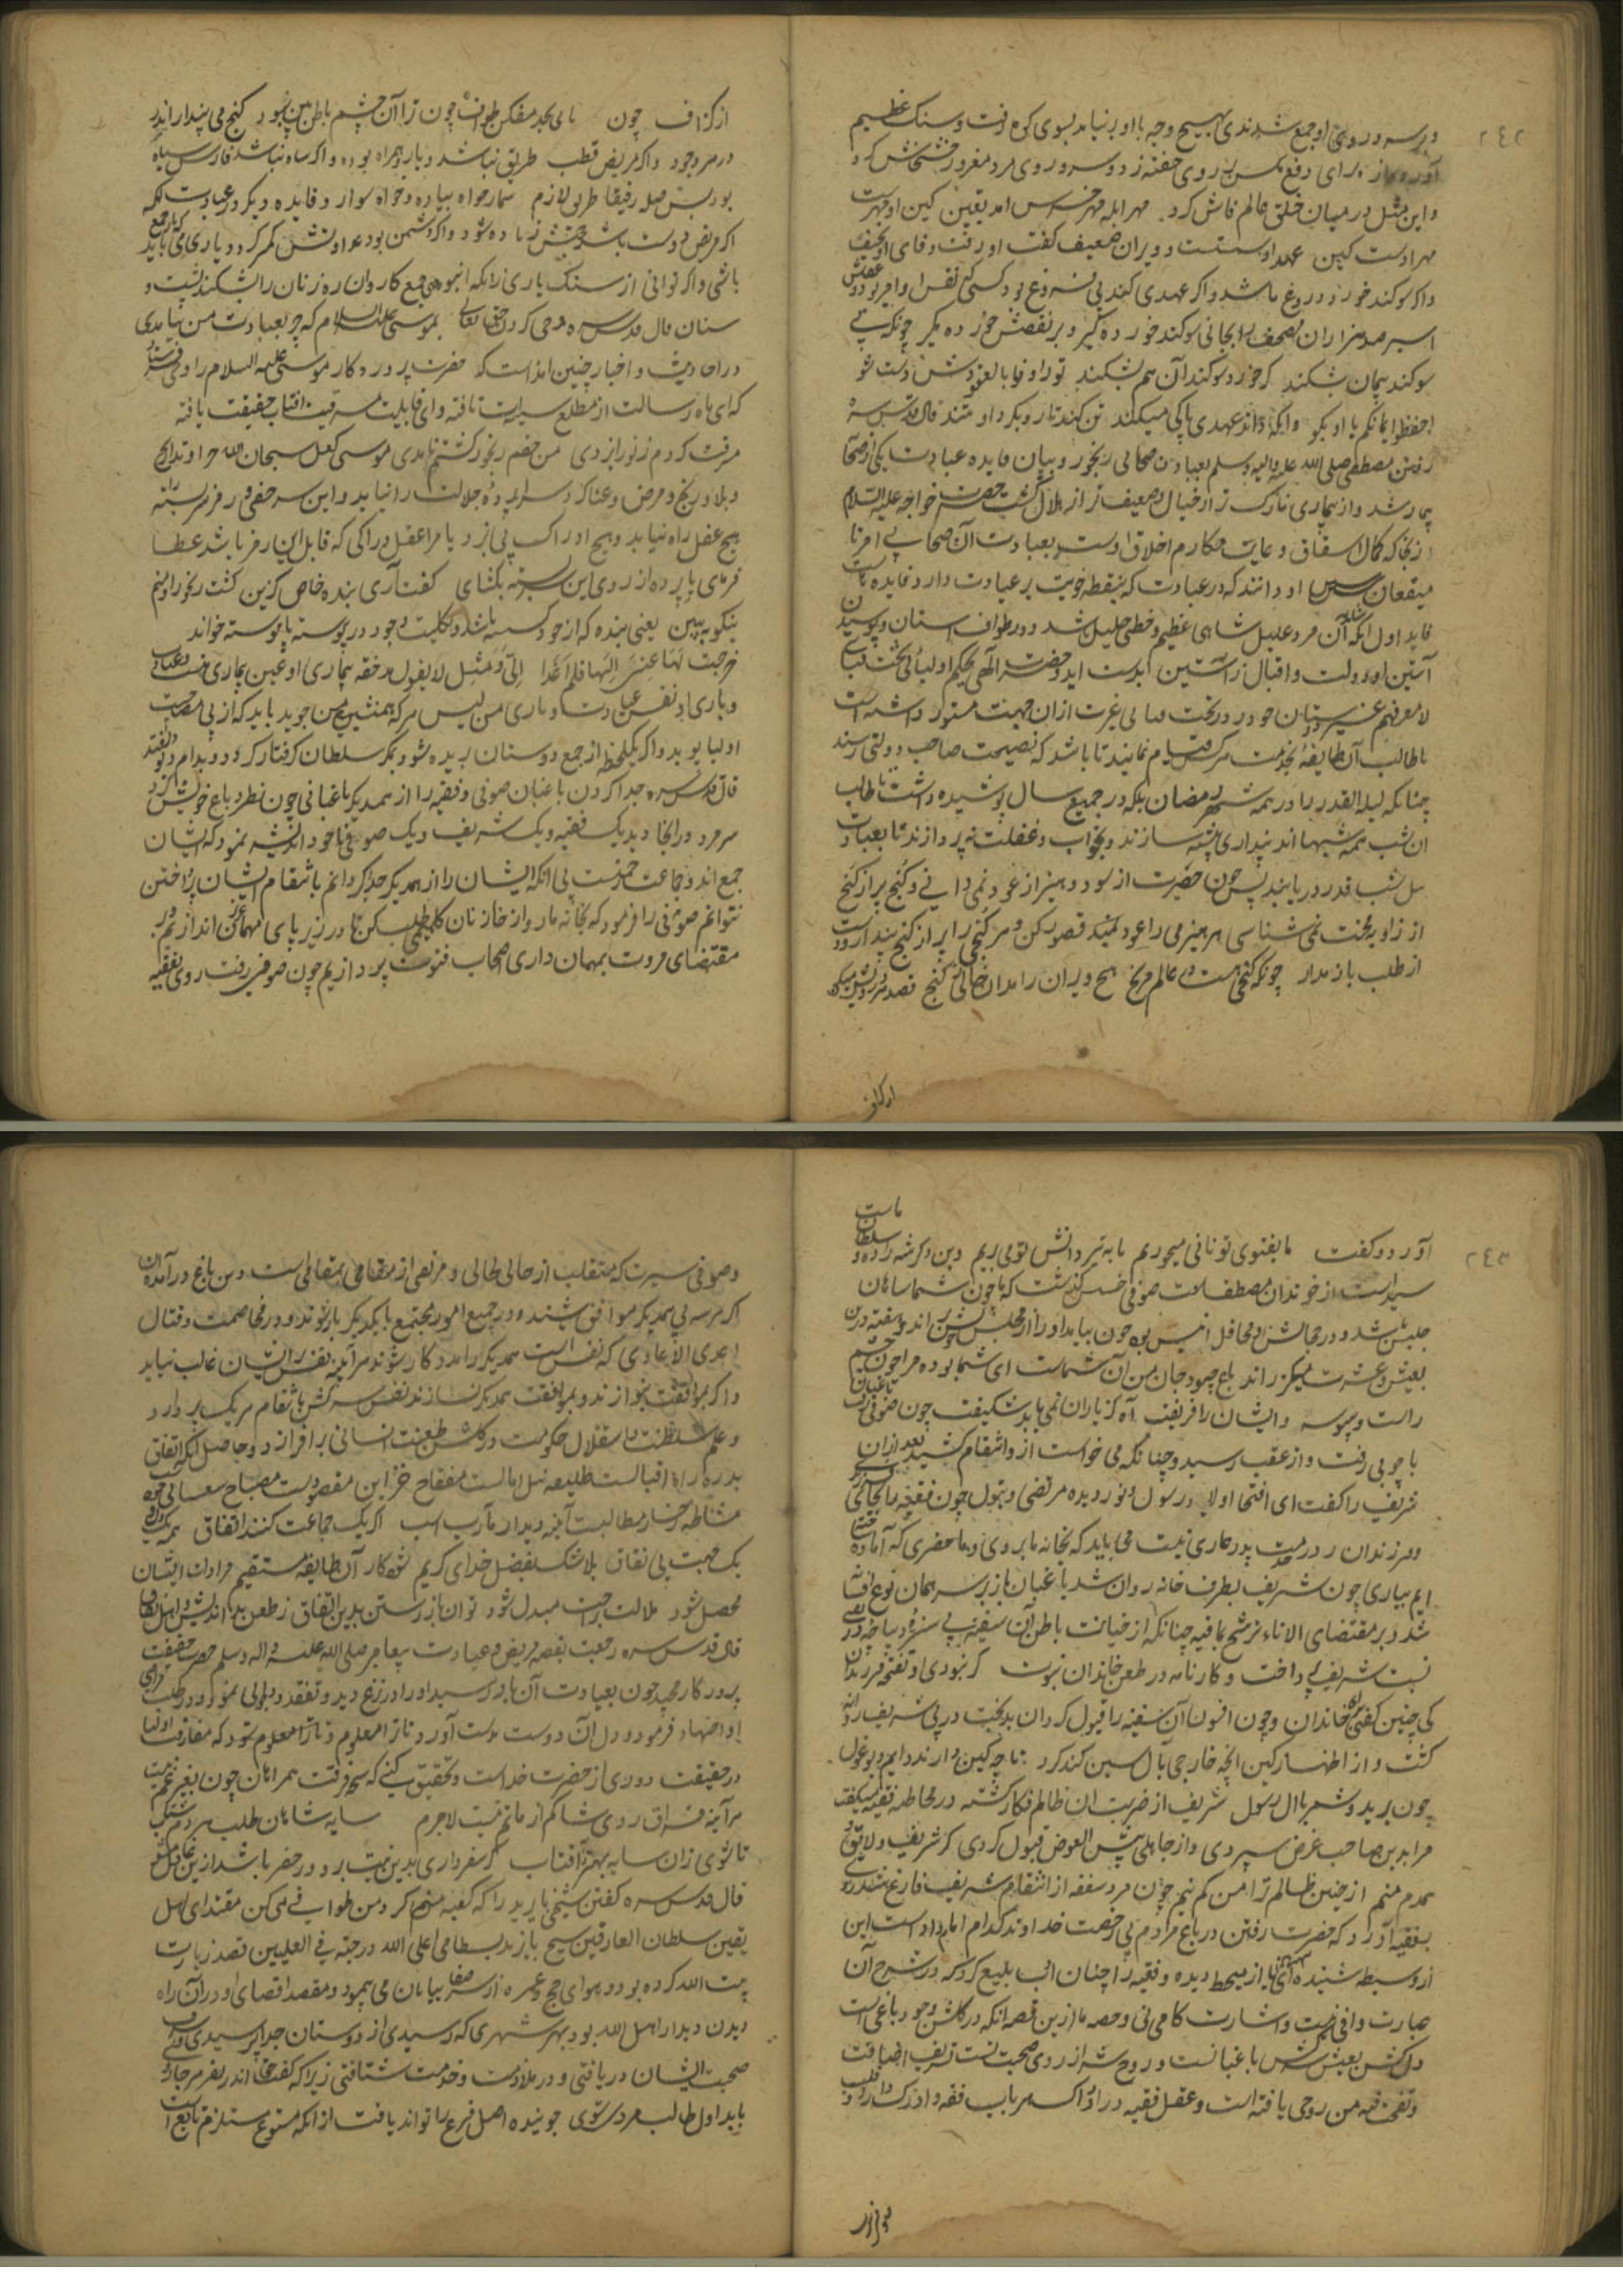 ۲۴۲
و بر سر و روی او جمع شدندی بهیچ وجه با او بر نیامد بسوی کوه رفت و سنک عظیم
آورد و باز برای دفع مکس بر روی خفته زد و سر و روی مرد مغرور خشخاش کرد
و این مثل در میان خلق عالم فاش کرد مهر ابله مهر خرس امد یقین کین او مهرست
مهر اوست کین عهد او سستست و ویران و ضعیف کفت او زفت و وفای او نحیف
واکر سوکند خورد دروغ باشد و اکر عهدی کند بی فروغ بود کسی که نفس او امیر بود و عقلش
اسیر صد هزاران مصحف را بجانی سوکند خورده کیر و بر نقضش خورده مکیر چونکه بی
سوکند پیمان بشکند کر خورد سوکند آن هم بشکند تو ز اوفوا بالعقودش دست شو
احفظوا ایمانکم با او مکو وانکه داند عهد با کی میکند تن کند تار و بکرد او تند قال قدس سره
رفتن مصطفی صلی الله علیه واله وسلم بعیادت صحابی رنجور و بیان فایده عیادت یکی از صحابه
بیمار شد و از بیماری نازک تر از خیال و ضعیف تر از هلال کشت حضرت خواجه علیه السلام
از آنجا که کمال اشفاق و غایت مکارم اخلاق اوست بعیادت آن صحابی رفت تا
فایده اول آنکه شاید آن مرد علیل شاهی عظیم و خطی جلیل باشد و در طواف استان و بوسیدن
آستین او دولت و اقبال راستین ابدست اید و حضرت الهی بحکم اولیائی تحت قبابی
لا یعرفهم غیری دوستان خود را در تحت قبای غیرت از ان جهت مستور داشته است
تا طالب آن طایفه بخدمت هر کس قیام نمایند تا باشد که بصحبت صاحب دولتی رسند
چنانکه لیلة القدر را در همه شهر رمضان بلکه در جمیع سال پوشیده داشت تا طالب
ان شب همه شبها اند بیداری پیشه سازند و بخواب و غفلت نپردازند تا بعبادت
شب قدر دریابند پس چون حضرت از سود و هیزم از عود نمی دانی و کنج پر از کنج
از زاویه تخت نمی شناسی هر هیزمی را عود قصور کن و هر کنجی را پر از کنج پندار و دست
از طلب باز مدار چونکه کنجی هست در عالم مرنج هیچ ویران را مدان خالی ز کنج قصد هر درویش میکن
ازکزاف
از کزاف چون یابی بجد میکن طواف چون ترا آن چشم باطن بین نبود کنج می پندار اندر
در هر وجود و اکر مریض قطب طریق نباشد و یار و همراه بود و اکر شاه نباشد فارس سپاه
بود پس صله رفیقان طریق لازم شمار خواه پیاده و خواه سوار و فایده دیکر در عیادت انکه
اکر مریض دوست باشد محبتش زیاده شود و اکر دشمن بود عداوتش کمتر کردد یاری باید که با جمع
باشی و اکر توانی از سنک یاری زانکه انبوهی جمع کاروان ره زنان را بشکند پشت و
سنان قال قدس سره وحی کردن حق تعالی بموسی علیه السلام که چرا بعیادت من نیامدی
در احادیث و اخبار چنین امده است که حضرت پروردکار موسی علیه السلام را وحی فرستاد
که ای ماه رسالت از مطلع سیرت تافته و ای قابلیت مشرقیت افتاب حقیقت یافته
مشرقت کردم ز نور ایزدی من حقم رنجور کشتم نامدی موسی کفت سبحان الله خداوندا رنج
و بلا و رنج و مرض و عنا کرد سراپرده جلالت را نیابد و این سر خفی و رمز بسته را
هیچ عقل راه نیابد و هیچ ادراک پی نبرد یا مرا عقل دراکی که قابل این رمز باشد عطا
فرمای یا پرده از روی این بسته بکشای کفت آری بنده خاص کزین کشت رنجور او منم
نیکو ببین یعنی بنده که از خود کسسته باشد و بکلیت وجود در پیوسته
خرجت لها
و یاری او نفس عبادت و یاری من لیس هر که همنشین من جوید باید که از پی صحبت
اولیا پوید و اکر یکلحظه از جمع دوستان بریده شود بمکر سلطان کرفتار کردد و بدام دیو افتد
قال قدس سره جدا کردن باغبان صوفی و فقیه را از همدیکر باغبانی چون نظر در باغ خویش کرد
سه مرد در انجا دید یک فقیه و یک شریف و یک صوفی با خود اندیشه نمود که ایشان
جمع اند و جماعت رحمتست بی انکه ایشان را از همدیکر جدا کردانم بانتقام ایشان پرداختن
نتوانم صوفی را فرمود که بخانه ما رو و از خازنان کلیمی طلب کن تا در زیر پای مهمانان عزیز اندازیم و بر
مقتضای مروت بمهمان داری اصحاب فتوت پردازیم چون صوفی رفت روی بفقیه
۲۴۳
آورد و کفت ما بفتوی تو نانی میخوریم ما به پر دانش تو می پریم وین دکر شه زاده و سلطان ماست
سید است از خوندان مصطفاست صوفی خسیس کیست که با چون شما شاهان
جلیس باشد و در مجالس و محافل انیس بود چون بیاید او را از مجلس خویش برانید و هفته در باغ من
بعیش و عشرت میکذرانید باغ چبود جان من آن شماست ای شما بوده مرا چون چشم
راست وسوسه داد ایشان را فریفت آه کز یاران نمی باید شکیفت چون صوفی رفت باغبان
با چوبی رفت و از عقب رسید و چنانکه می خواست از و انتقام کشید بعد از ان
شریف را کفت ای افتخار اولاد رسول و نور دیده مرتضی و بتول چون فقیه را بجای
فرزندان در خدمت پدر عاری نیست می باید که بخانه ما بروی و ما حضری که آماده
ایم بیاری چون شریف بطرف خانه روان شد باغبان باز بر سر همان نوع افسانه
شد و بر مقتضای الاناء یترشح بما فیه چنانکه از خیانت باطن آن سفیه بی
نسبت شریف پرداخت و کارنامه در طعن خاندان نبوت کر نبودی او نتیجه مرتدان
کی چنین کفتی برای خاندان و چون افسون آن سفیه را قبول کرد آن بدبخت در پی شریف روانه
کشت و از اظهار کین انچه خارجی با آل یاسین کند کرد تا چه کین دارند دایم دیو و غول
چون یزید و شمر با ال رسول شریف از ضربت ان ظالم فکار کشته در مخاطبه فقیه میکفت
مرا بدین صاحب غرض سپردی و از جاهلی بئس العوض قبول کردی کر شریف و لایق و
همدم نیم از چنین ظالم ترا من کم نیم چون مرد سفله از انتقام شریف فارغ شد روی
بفقیه آورد که حضرت رفتن در باغ مردم بی رخصت خداوند کدام امام داد است این
از وسیط شنیده ای یا از محیط دیده و فقیه را چنان ادب بلیغ کرد که در شرح آن
عبارت وافی نیست و اشارت کافی نی و حصه ما از ین قصه آنکه در کلشن وجود باغی است
دلکش نفس سرکش باغبانست و روح شریف از روی صحبت نسبت تشریف اضافت
ونفخت فیه من روحی یافته است و عقل فقیه
پردازد
وصوفی سیرت که متقلب از حالی بحالی و مرتقی از مقامی بمقامی است در این باغ درآمده
اکر هر سه بی همدیکر موافق باشند و در جمیع امور مجتمع با یکدیکر یار شوند و در مخاصمت و قتال
اعدی الاعادی که نفس است همدیکر را مددکار شوند هر آینه نفس بر ایشان غالب نیاید
و اکر بموافقت نپردازند و بموافقت همدیکر نسازند نفس سرکش بانتقام هر یک پردازد
و علم سلطنت و استقلال حکومت در کلشن طینت انسانی بر افرازد و حاصل انکه اتفاق
بدرقه راه اقبالست طلیعه نیل امالست مفتاح خزاین مقصودست مصباح
مشاطه رخسار مطالبست آینه دیدار مآرب است اکر یک جماعت کنند اتفاق
یک جهت بی نفاق بلا شک بفضل خدای کریم شود کار آن طایفه مستقیم مرادات ایشان
محصل شود ملالت براحت مبدل شود توان باز رستن بدین اتفاق ز طعن بداندیش و اهل نفاق
قال قدس سره رجعت بقصه مریض و عیادت پیغامبر صلی الله علیه واله وسلم حضرت حقیقت
پروردکار مجید چون بعیادت آن یار رسید او را در نزع دید و تفقد و دلداری نمود و در طلب مراد
او اجتهاد فرمود و دل آن دوست بدست آورد تا ترا معلوم شود که مفارقت اولیا
در حقیقت دوری از حضرت خداست و تحقیق کنی که نتیجه فرقت همراهان چون بغیر غم نیست
هر آینه فراق روی شاه کم از ماتم نیست لاجرم سایه شاهان طلب هر دم شتاب
تا شوی زان سایه بهتر ز آفتاب کر سفر داری بدین نیت برو ور حضر باشد از ین غافل مشو
قال قدس سره کفتن شیخی بایزید را که کعبه منم کرد من طوافی می کن مقتدای اهل
یقین سلطان العارفین شیخ بایزید بسطامی اعلی الله درجته فی العلیین قصد زیارت
بیت الله کرده بود و بهوای حج و عمره از سر صفا بیابان می پیمود و مقصد اقصای او در آن راه
دیدن دیدار اهل الله بود بهر شهری که رسیدی از دوستان خدا پرسیدی و شرف
صحبت ایشان دریافتی و در ملازمت و خدمت شتافتی زیرا که کفت حق اندر سفر هر جا روی
باید اول طالب مردی شوی جوینده اصل فرع را تواند یافت از انکه متبوع مستلزم تابع است